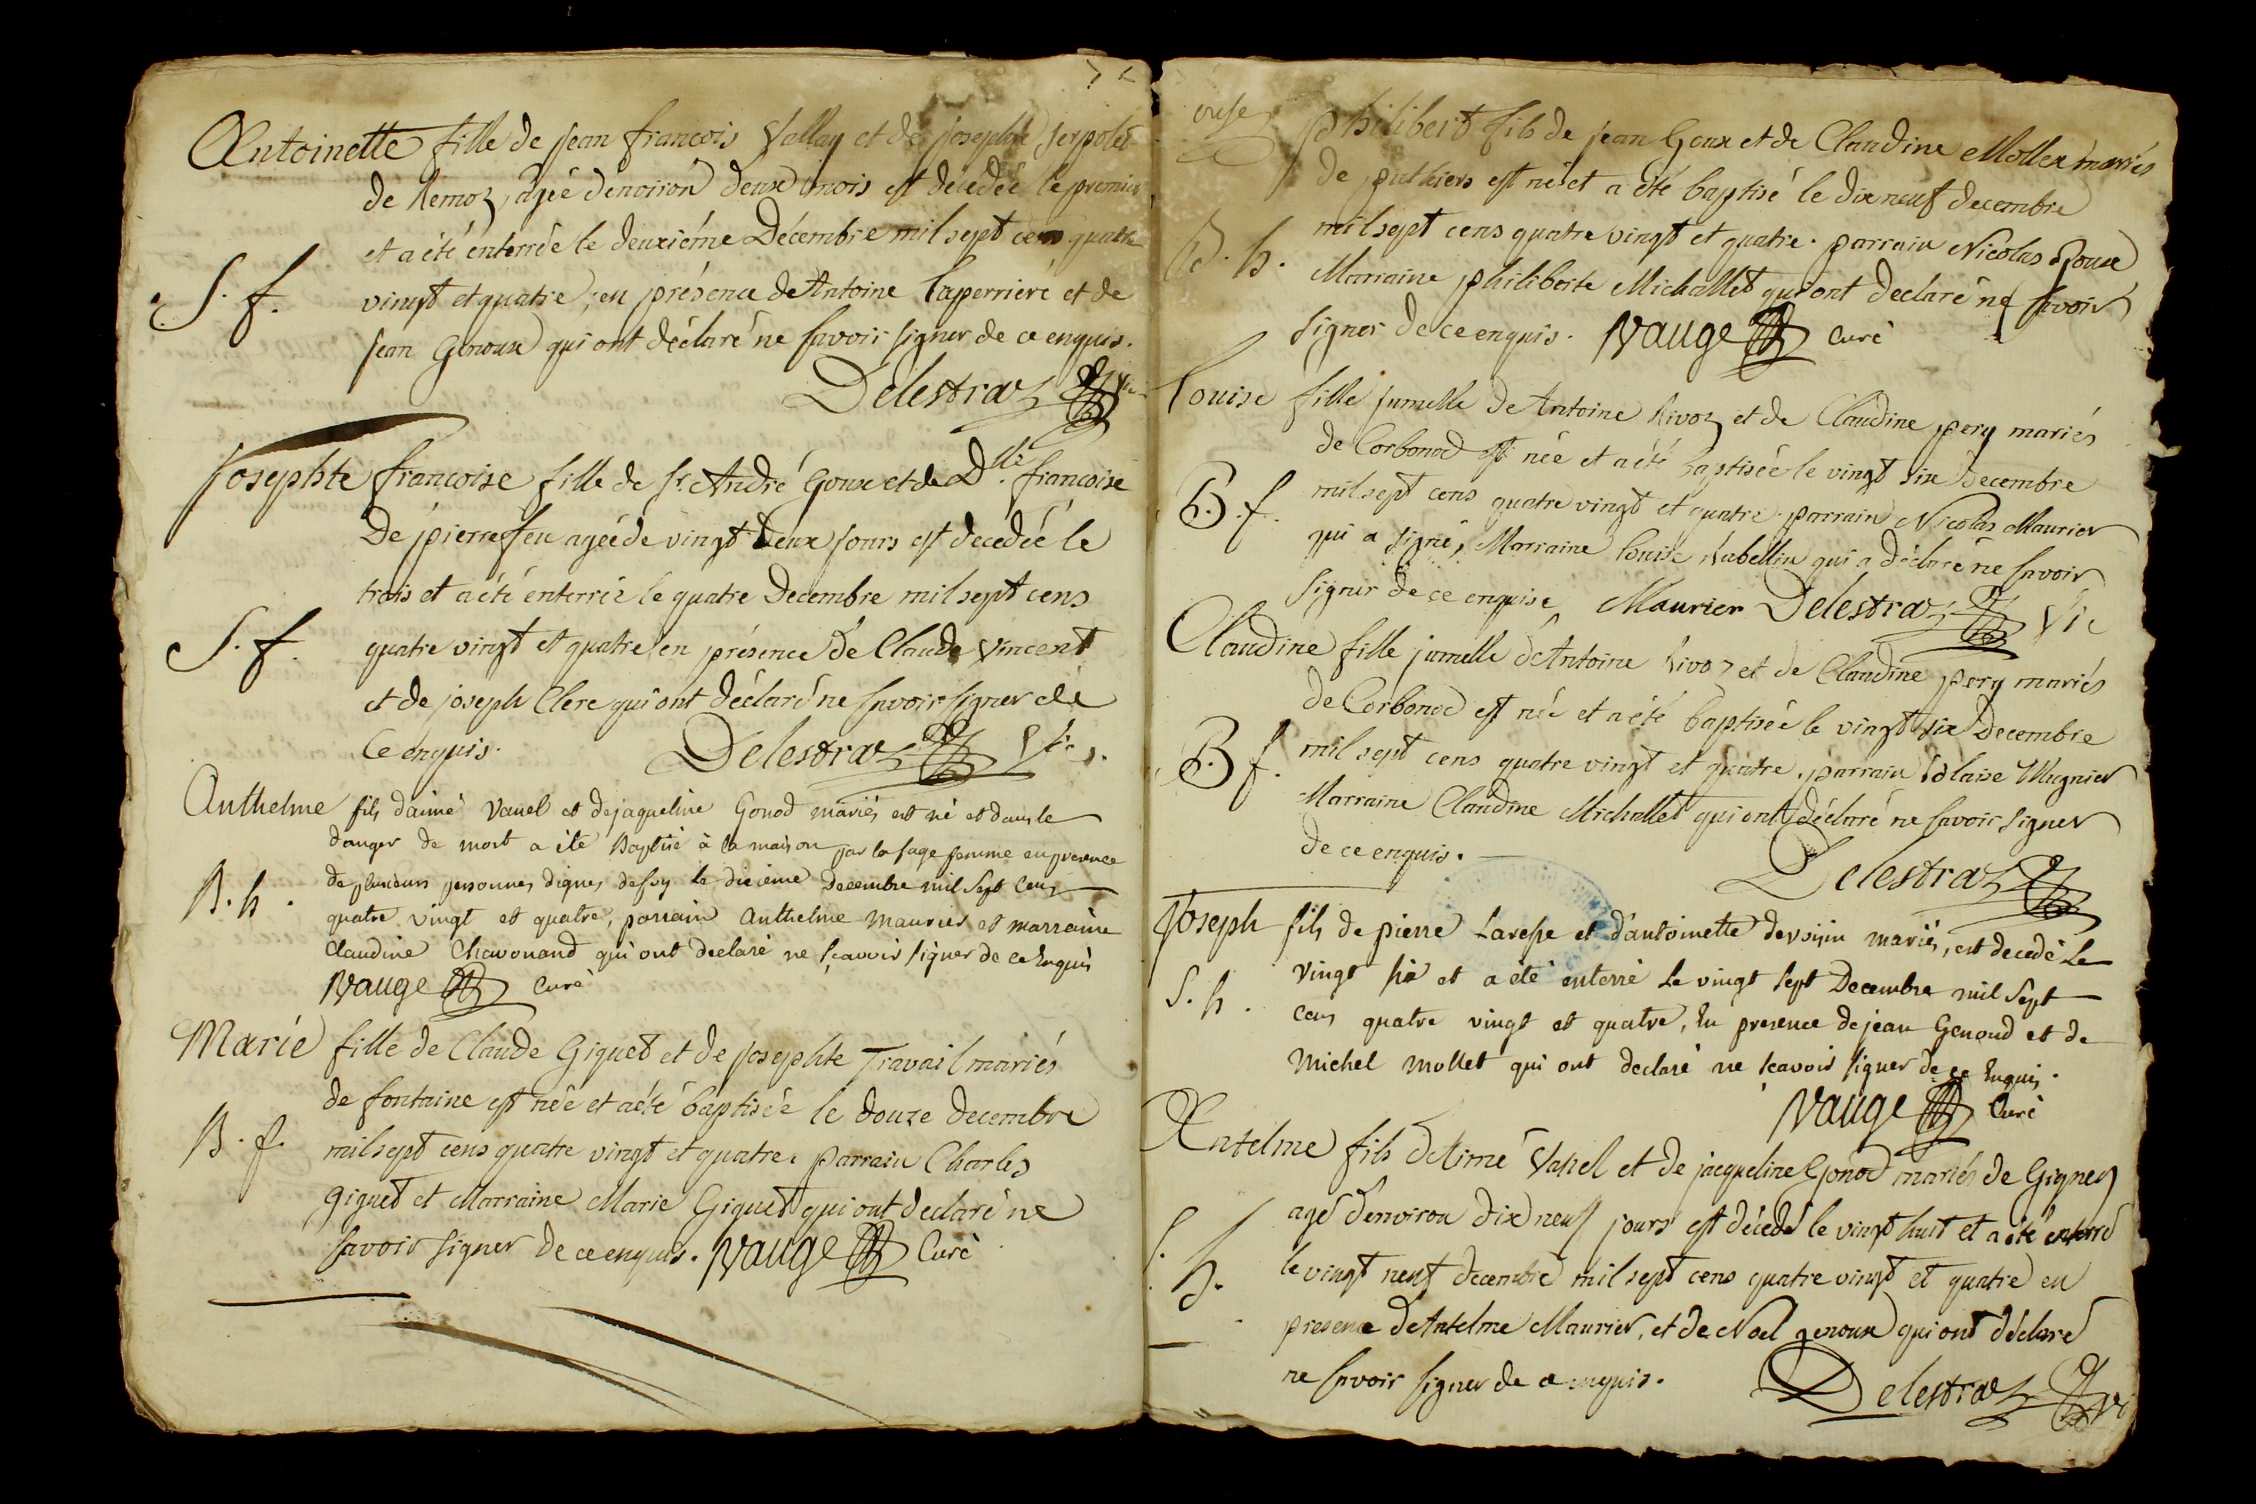 Antoinette fille de jean francois Vallay et de josephte Serpolet
de Remoz, agée denviron deux mois est décedée le premier
et a été enterrée le deuxiéme Décembre mil sept cens quatre
S. f.
vingt et quatre, en présence de Antoine Laperriere et de
jean Genoux qui ont déclaré ne savoir signer de ce enquis.
Delestraz Vic
Josephte francoise fille de Sr. André Goux et de Dlle. francoise
De pierrefeu agée de vingt deux jours est decedée le
trois et a été enterrée le quatre Decembre mil sept cens
S. f.
quatre vingt et quatre en présence de Claude Vincent
et de joseph Clerc qui ont déclaré ne savoir signer de
Ce enquis. Delestraz Vic.
Anthelme fils daimé Vauel et de jaqueline Gonod mariés est né et dans le
danger de mort a été Baptisé à la maison par la sage femme en presence
de plusieurs personnes dignes de foy le dixieme Decembre mil sept Cens
B. h.
quatre vingt et quatre, parrain Anthelme Maurier et marraine
Claudine Chavonand qui ont declaré ne sçavoir signer de ce Enquis
Vauge Curé
Marie fille de Claude Giguet et de Josephte Travail mariés
de fontaine est née et a été baptisée le douze decembre
B. f.
mil sept cens quatre vingt et quatre. parrain Charles
giguet et Marraine Marie Giguet qui ont declaré ne
savoir signer de ce enquis. Vauge Curé
philibert fils de jean Goux et de Claudine Mollex mariés
de puthiers est né et a été baptisé le dix neuf decembre
B. h.
mil sept cens quatre vingt et quatre. parrain Nicolas Goux
Marraine philiberte Michallet qui ont declaré ne savoir
signer de ce enquis. Vauge Curé
Louise fille jumelle de Antoine Rivoz et de Claudine pery mariés
de Corbonod est née et a été baptisée le vingt six Decembre
B. f.
mil sept cens quatre vingt et quatre. parrain Nicolas Maurier
qui a signé, Marraine Louise Rubellin qui a déclaré ne savoir
signer de ce enquise, Maurier Delestraz Vic
Claudine fille jumelle de Antoine Rivoz et de Claudine pery mariés
de Corbonod est née et a été baptisée le vingt six Decembre
B. f.
mil sept cens quatre vingt et quatre. parrain Blaise Mugnier
Marraine Claudine Michallet qui ont déclaré ne savoir signer
de ce enquis.
Delestraz
Joseph fils de pierre Larepe et d'antoinette devoisin mariés, est decedé le
S. h.
vingt six et a été enterré le vingt sept Decembre mil sept
Cens quatre vingt et quatre, En presence de jean Genoud et de
Michel Mollet qui ont declaré ne scavoir signer de ce Enquis.
Vauge Curé
Antelme fils de Aimé Vauel et de jacqueline Gonod mariés de Gignez
agé d'environ dix neuf jours est décedé le vingt huit et a été enterré
S. h.
le vingt neuf decembre mil sept cens quatre vingt et quatre en
presence de Antelme Maurier, et de Noel genoux qui ont déclaré
ne savoir signer de ce enquis.
Delestraz Vic